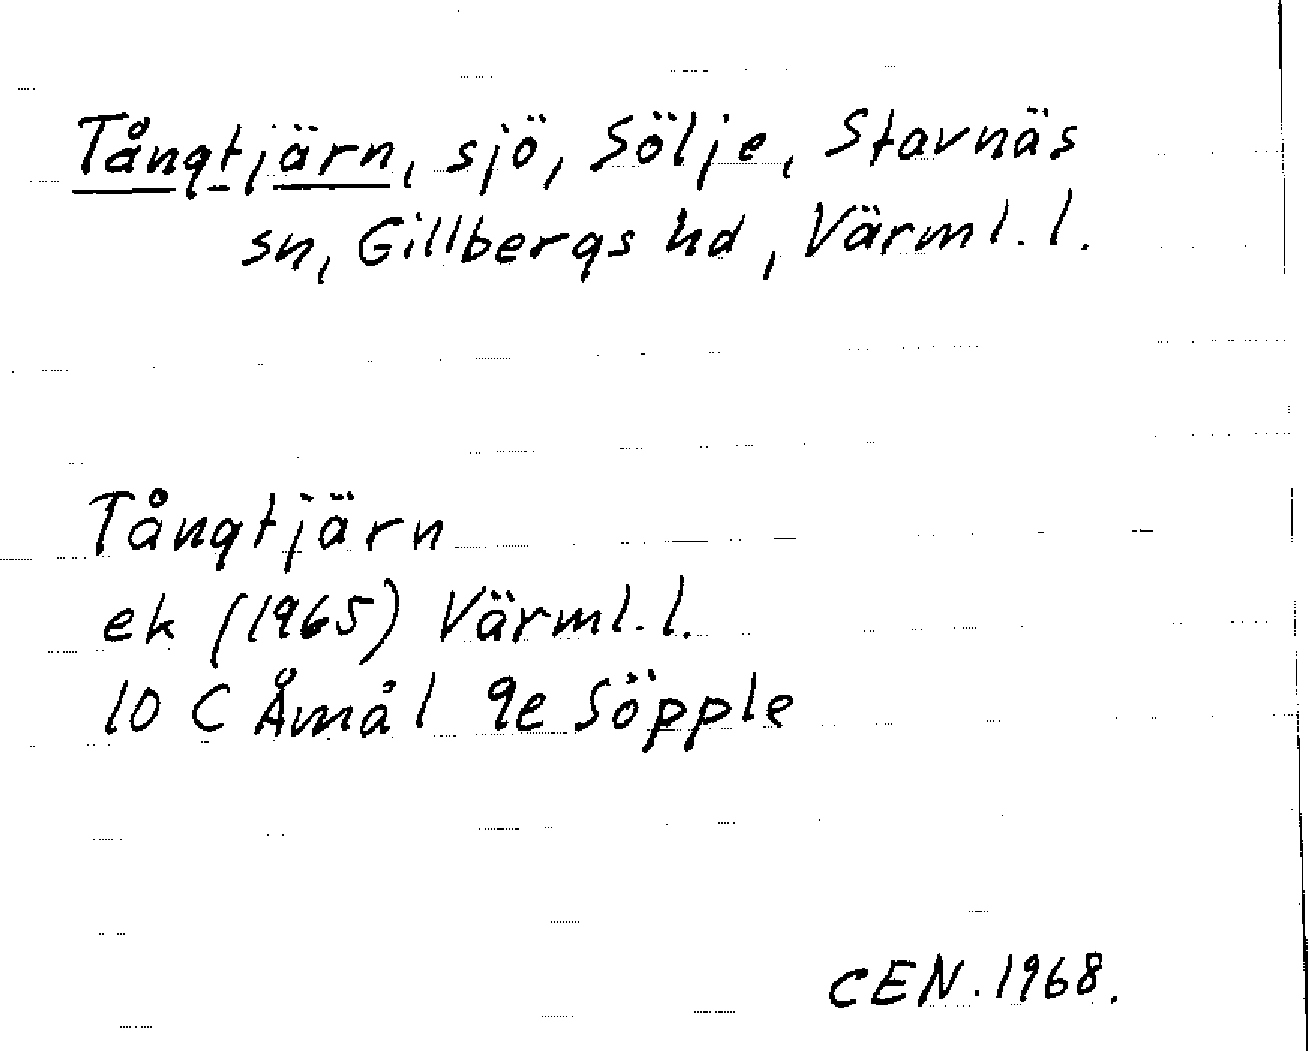 Tångtjärn, sjö, Sölje, Stavnäs
sn, Gillbergs hd, Värml. l.
Tångtjärn
ek (1965) Värml. l.
10 C Åmål 9e Söpple
CEN. 1968.